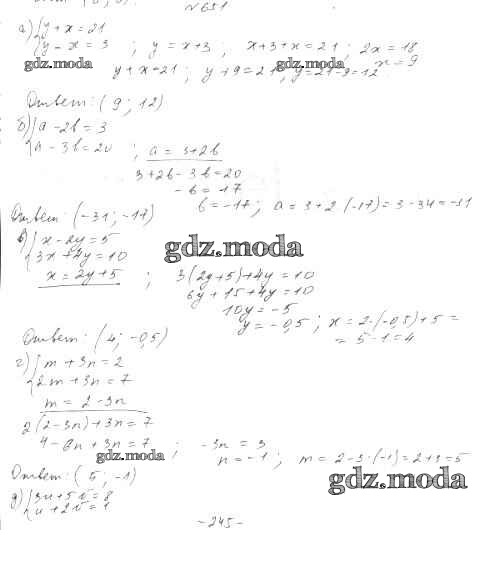 N 651
а) { y + x = 21
{ y - x = 3 ; y = x+3 ; x+3+x = 21 ; 2x = 18
gdz.moda gdz.moda x = 9
y + x = 21 ; y + 9 = 21 ; y = 21-9 = 12
Ответ: (9; 12)
б) { a - 2b = 3
{ a - 3b = 20 ; a = 3+2b
3+2b - 3b = 20
-b = 17
b = -17 ; a = 3 + 2·(-17) = 3 - 34 = -31
Ответ: (-31; -17)
в) { x - 2y = 5
{ 3x + 4y = 10
gdz.moda
x = 2y + 5 ; 3(2y+5) + 4y = 10
6y + 15 + 4y = 10
10y = -5
y = -0,5 ; x = 2·(-0,5) + 5 =
= 5 - 1 = 4
Ответ: (4; -0,5)
г) { m + 3n = 2
{ 2m + 3n = 7
m = 2 - 3n
2(2-3n) + 3n = 7
4 - 6n + 3n = 7 ; -3n = 3
gdz.moda n = -1 ; m = 2-3·(-1) = 2+3 = 5
Ответ: (5; -1)
gdz.moda
д) { 3u + 5v = 8
{ u + 2v = 1
- 245 -